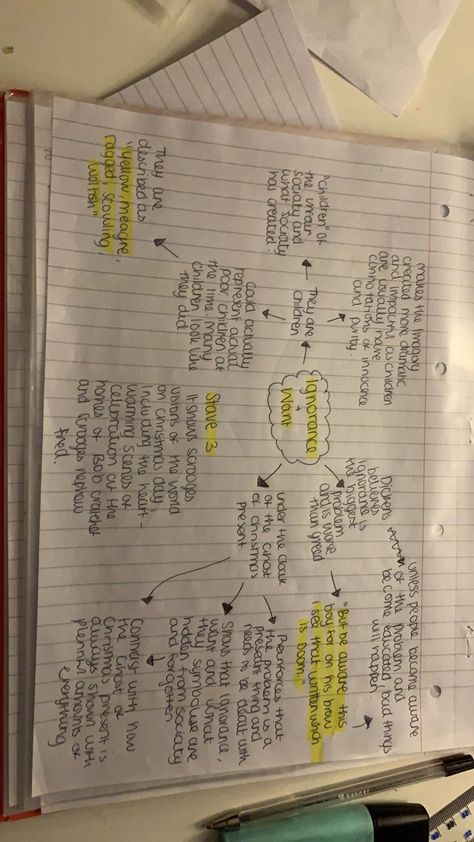 makes the imagery
created more dramatic
and impactful as children
are usually have
connotations of innocence
and purity
"children" of
the unfair
society and
what society
has created.
They are
children
could actually
represent actual
poor children at
the time. many
children look like
they did
They are
described as
"yellow, meagre,
ragged, scowling,
wolfish"
Ignorance
+
Want
Stave 3
It shows scrooges
visions of the world
on christmas day
including the heart-
warming scenes of
celebration at the
homes of Bob cratchit
and scrooges nephew
fred.
Dickens
believes
ignorance is
the biggest
problem
and is worse
than greed
unless people become aware
of the problem and
become educated bad things
will happen
"But be aware this
boy for on his brow
I see that written which
is Doom."
under the cloak
of the Ghost
of christmas
present
Reinforces that
the problem is a
present thing and
needs to be dealt with
Shows that Ignorance,
want and what
they symbolise are
hidden from society
and forgotten
Contrast with how
the Ghost of
Christmas present is
always shown with
plentiful amounts of
everything